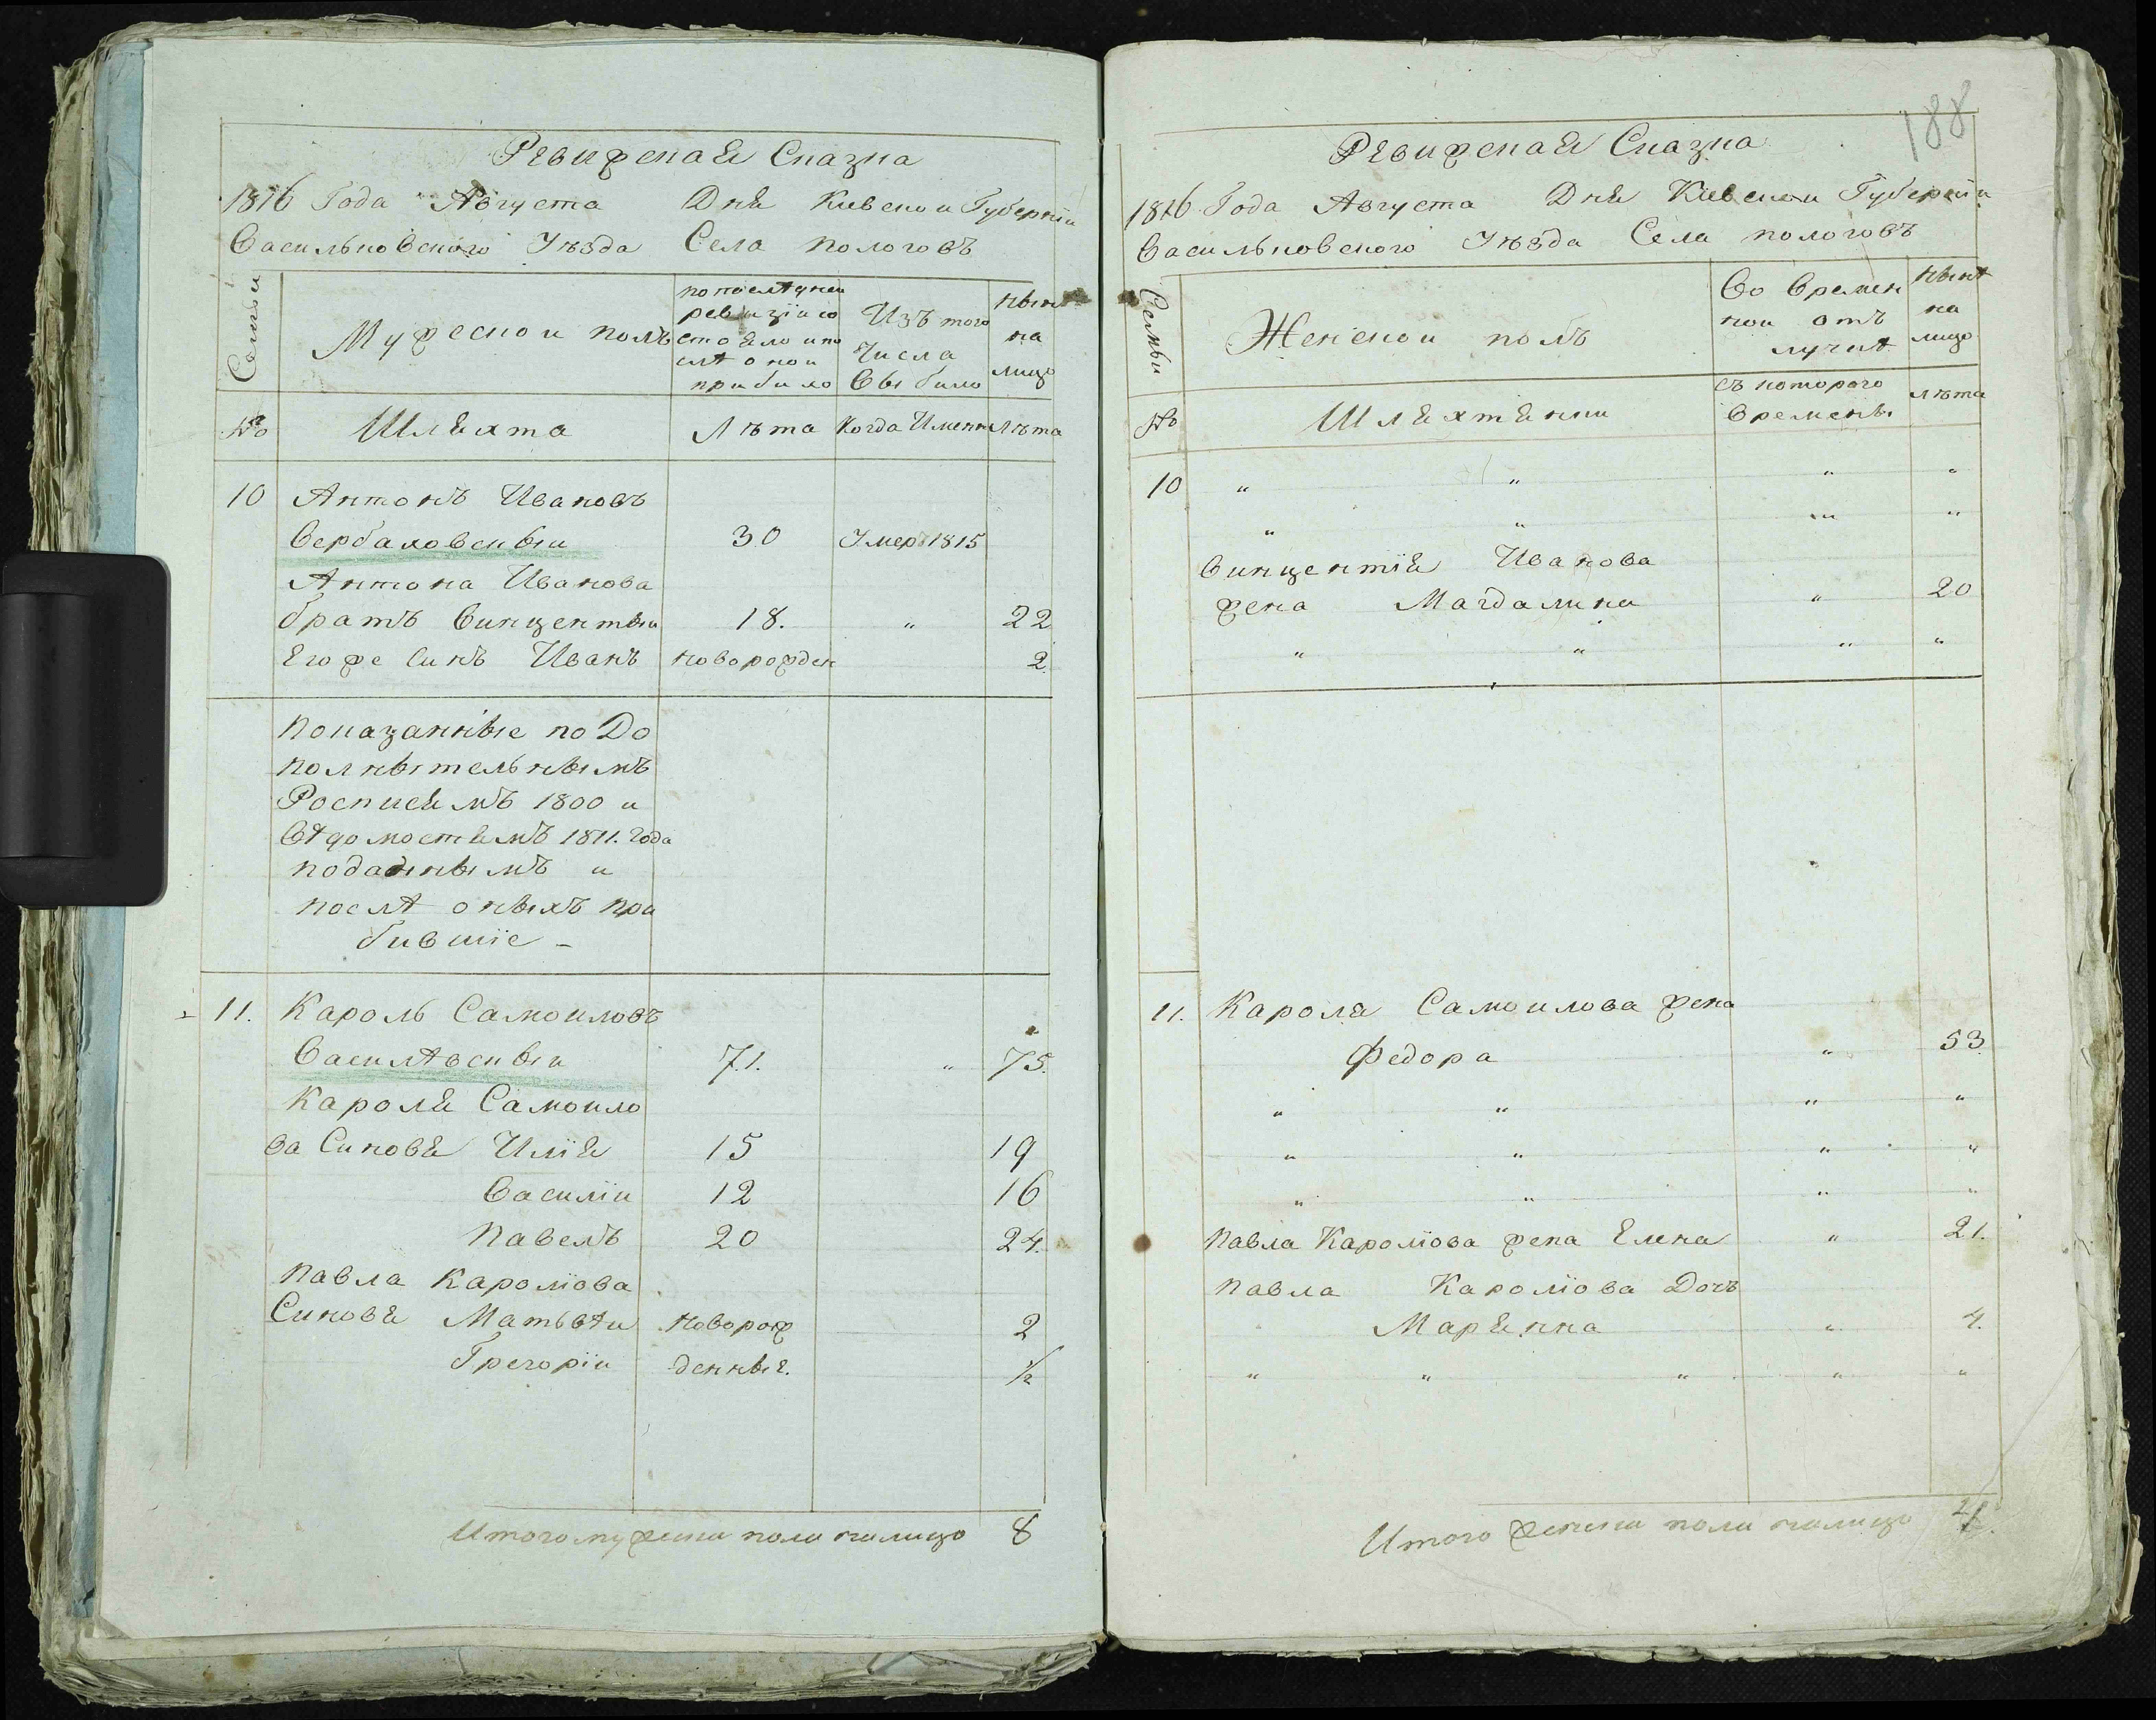 Ревижская Сказка
1816 Года Августа Дня Киевскои Губернїи
Васильковского Уѣзда Села пологовъ
Семьи
Мужескои полъ
по послѣднеи
ревизїи со
стояло и по
слѣ онои
прибило
Изъ того
Числа
Выбило
Нынѣ
на
лицо
№
Шляхта
Лѣта
Когда Именно
Лѣта
10 Антонъ Ивановъ
Вербаховскыи 30 Умер 1815
Антона Иванова
братъ Винцентыи 18. " 22
Его же Синъ Иванъ новорожден 2
показанные по До
полнытельнымъ
Росписямъ 1800 и
Вѣдомостямъ 1811. Года
поданнымъ и
послѣ оныхъ при
бившїе -
11. Кароль Самоиловъ
Василѣвскыи 71. " 75.
Кароля Самоило
ва Синовя Илїя 15 19
Василїи 12 16
Павелъ 20 24.
Павла Каролїова
Синовя Матьвѣи новорож 2
Грегорїи денные. 1/2
Итого мужеска пола налицо 8
188
Ревижская Сказка
1816 Года Августа Дня Киевскои Губернїи
Васильковского Уѣзда Села пологовъ
Семьи
Женскои полъ
Во Времен
нои отъ
лучкѣ
Нынѣ
на
лицо
№
Шляхтянки
съ которого
Времены
лѣта
10 " " " "
" " " "
Винцентїя Иванова
жена Магдалина " 20
" " " "
11. Кароля Самоилова жена
Федора " 53.
" " " "
" " " "
" " " "
Павла Каролїова жена Елена " 21.
Павла Каролїова Дочь
Марянна " 4.
" " " " "
Итого женска пола налицо 4.